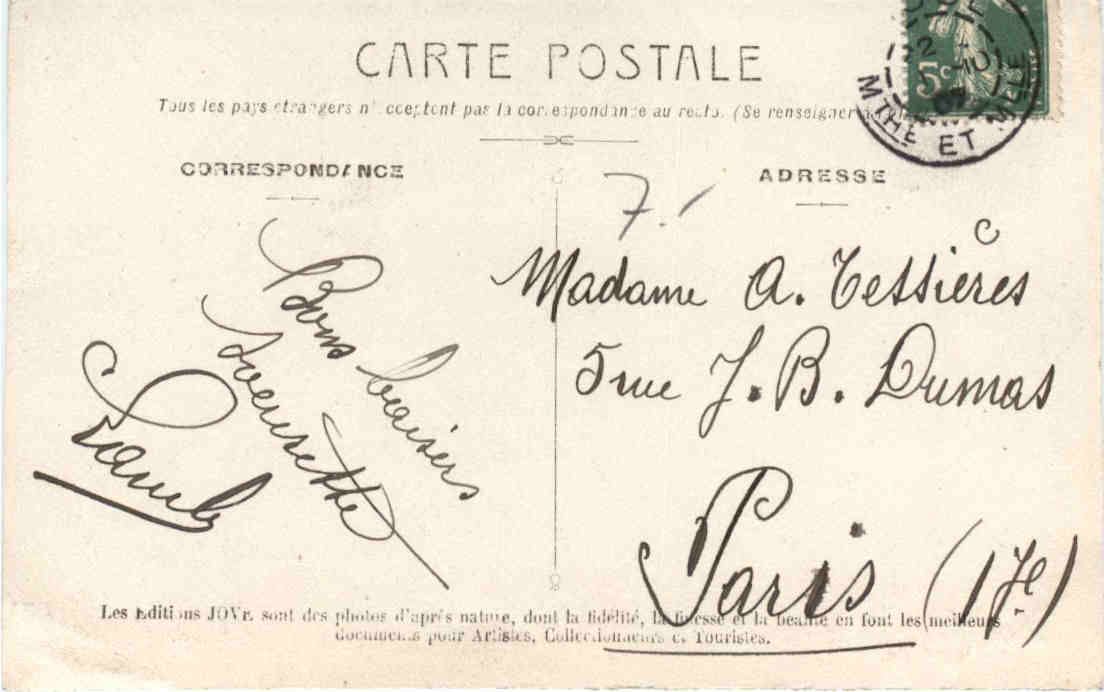 CARTE POSTALE
Tous les pays étrangers n'acceptent pas la correspondance au recto. (Se renseigner
CORRESPONDANCE
ADRESSE
5c
22
07
MTHE ET MLLE
7.
Bons baisers
Soeurette
Madame A. Tessières
5 rue J. B. Dumas
Paris (17e)
Les Editions JOVE sont des photos d'après nature, dont la fidélité, la finesse et la beauté en font les meilleurs
documents pour Artistes, Collectionneurs et Touristes.